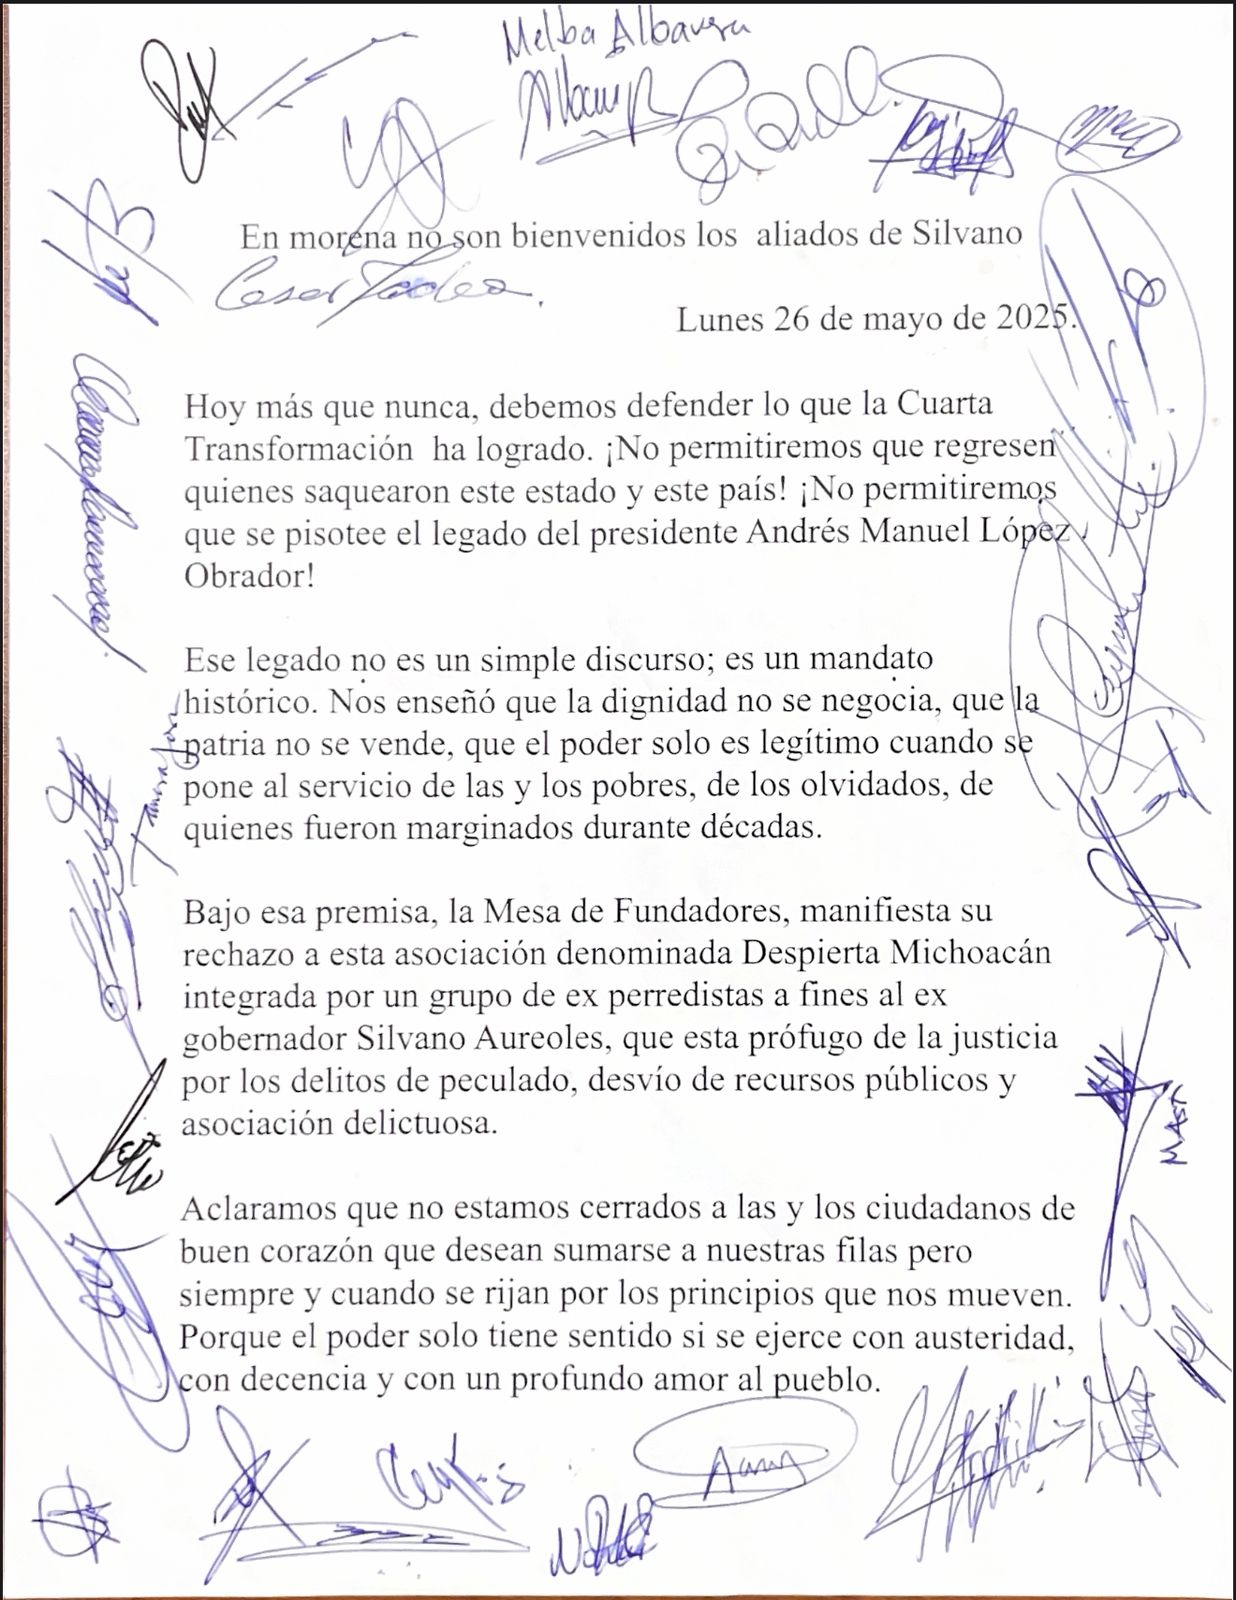 Melba Albavera
En morena no son bienvenidos los  aliados de Silvano
Cesar
Lunes 26 de mayo de 2025.
Hoy más que nunca, debemos defender lo que la Cuarta
Transformación  ha logrado. ¡No permitiremos que regresen
quienes saquearon este estado y este país! ¡No permitiremos
que se pisotee el legado del presidente Andrés Manuel López
Obrador!
Ese legado no es un simple discurso; es un mandato
histórico. Nos enseñó que la dignidad no se negocia, que la
patria no se vende, que el poder solo es legítimo cuando se
pone al servicio de las y los pobres, de los olvidados, de
quienes fueron marginados durante décadas.
Bajo esa premisa, la Mesa de Fundadores, manifiesta su
rechazo a esta asociación denominada Despierta Michoacán
integrada por un grupo de ex perredistas a fines al ex
gobernador Silvano Aureoles, que esta prófugo de la justicia
por los delitos de peculado, desvío de recursos públicos y
asociación delictuosa.
Aclaramos que no estamos cerrados a las y los ciudadanos de
buen corazón que desean sumarse a nuestras filas pero
siempre y cuando se rijan por los principios que nos mueven.
Porque el poder solo tiene sentido si se ejerce con austeridad,
con decencia y con un profundo amor al pueblo.